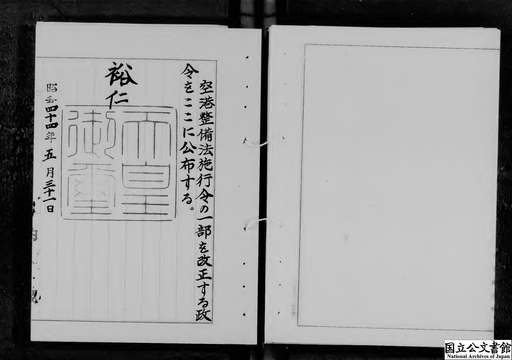 空港整備法施行令の一部を改正する政
令をここに公布する。
裕仁
天皇
御璽
昭和四十四年五月三十一日
国立公文書館
National Archives of Japan